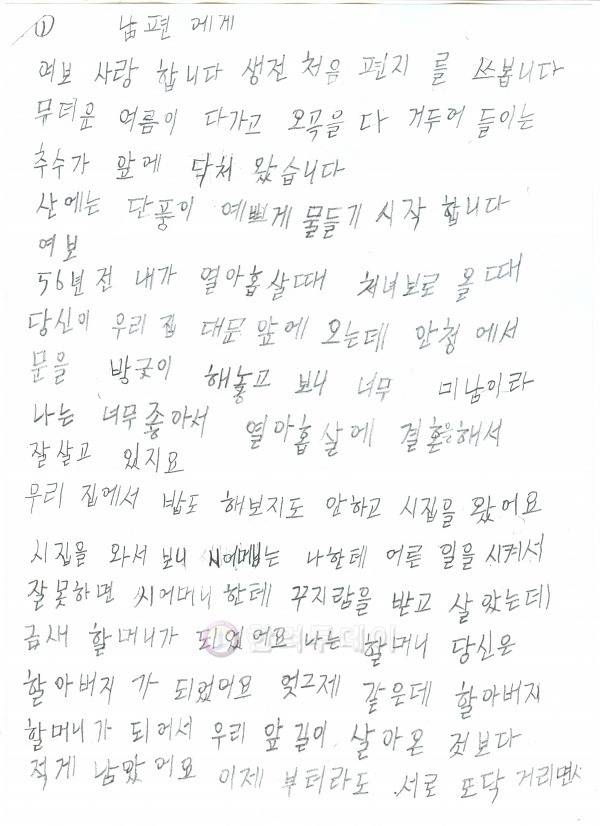 ① 남편에게
여보 사랑 합니다 생전 처음 편지 를 쓰봅니다
무더운 여름이 다가고 오곡을 다 거두어 들이는
추수가 앞에 닥처 왔습니다
산에는 단풍이 예쁘게 물들기 시작 합니다
여보
56년전 내가 열아홉살때 처녀보로 올때
당신이 우리집 대문앞에 오는데 안청에서
문을 방긋이 해놓고 보니 너무 미남이라
나는 너무좋아서 열아홉살에 결혼을해서
잘살고 있지요
우리 집에서 밥도 해보지도 안하고 시집을 왔어요
시집을 와서 보니 는 나한테 어른 일을 시켜서
잘못하면 씨어머니 한테 꾸지람을 받고 살았는데
금새 할머니가 되었어요 나는 할머니 당신은
할아버지 가 되었어요 엊그제 같은데 할아버지
할머니가 되어서 우리 앞길이 살아온 것보다
적게 남았어요 이제 부터라도 서로 또닥 거리면서